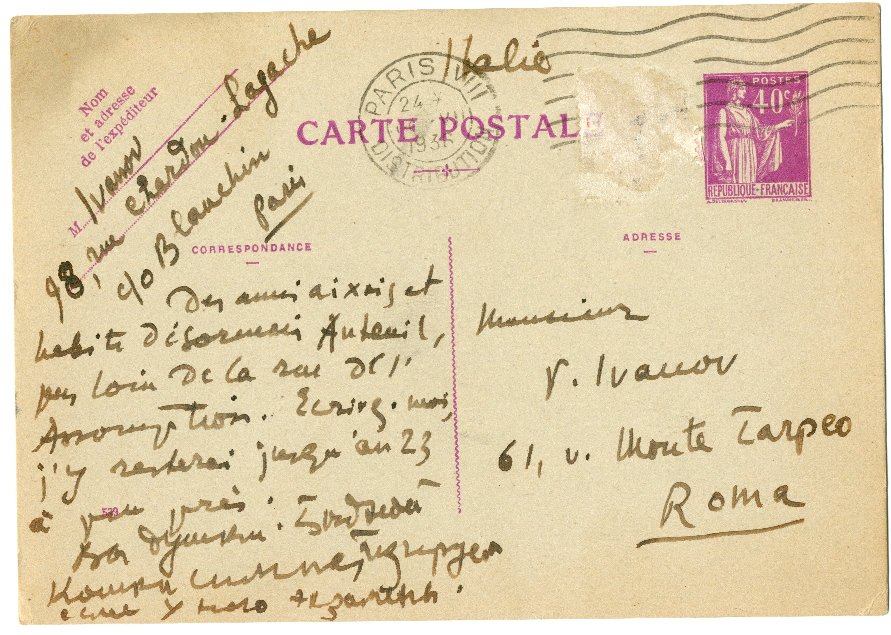 Italie
Nom
et adresse
de l'expéditeur
M. Ivanov
98, rue Chardon-Lagache
c/o Blanchin
Paris
CARTE POSTALE
PARIS VIII
24
1936
DISTRIBUTION
POSTES
40c
REPUBLIQUE-FRANÇAISE
CORRESPONDANCE
ADRESSE
habite désormais Auteuil,
pas loin de la rue de l'
Assomption. Ecrivez-moi,
j'y resterai jusqu'au 23
à peu près.
Monsieur
V. Ivanov
61, v. Monte Tarpeo
Roma